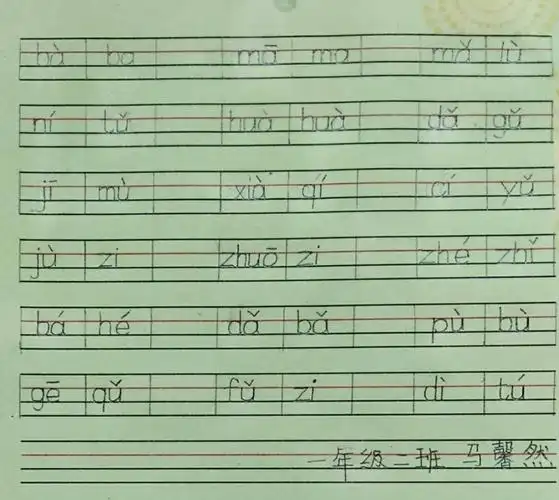 bà ba mā ma mǎ lù
ní tǔ huà huà dǎ gǔ
jī mù xià qí cí yǔ
jù zi zhuō zi zhé zhǐ
bá hé dǎ bǎ pù bù
gē qǔ fǔ zi dì tú
一年级二班 马馨然